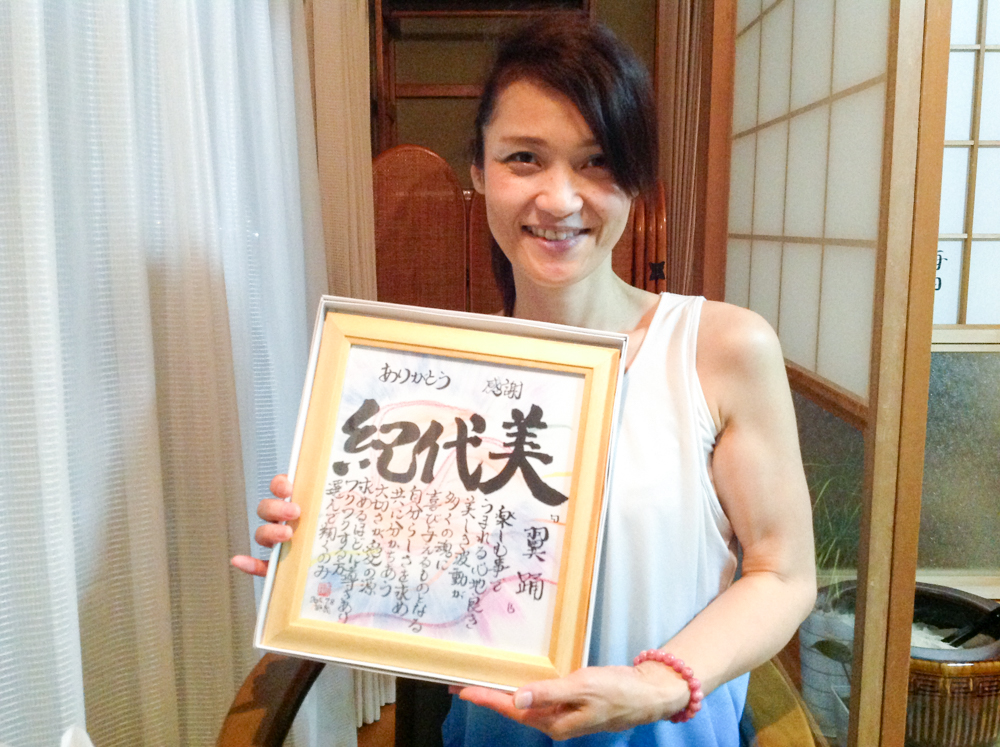 ありがとう 感謝
紀代美
「翼踊」
楽しむ事で
うまれる心地良き
美しき波動が
多くの魂に
喜び与えるものとなる
自分らしさを求め
共に分かちあう
大切さが愛の源
求めるほどに あり
ワクワクする方
選んで翔くのみ